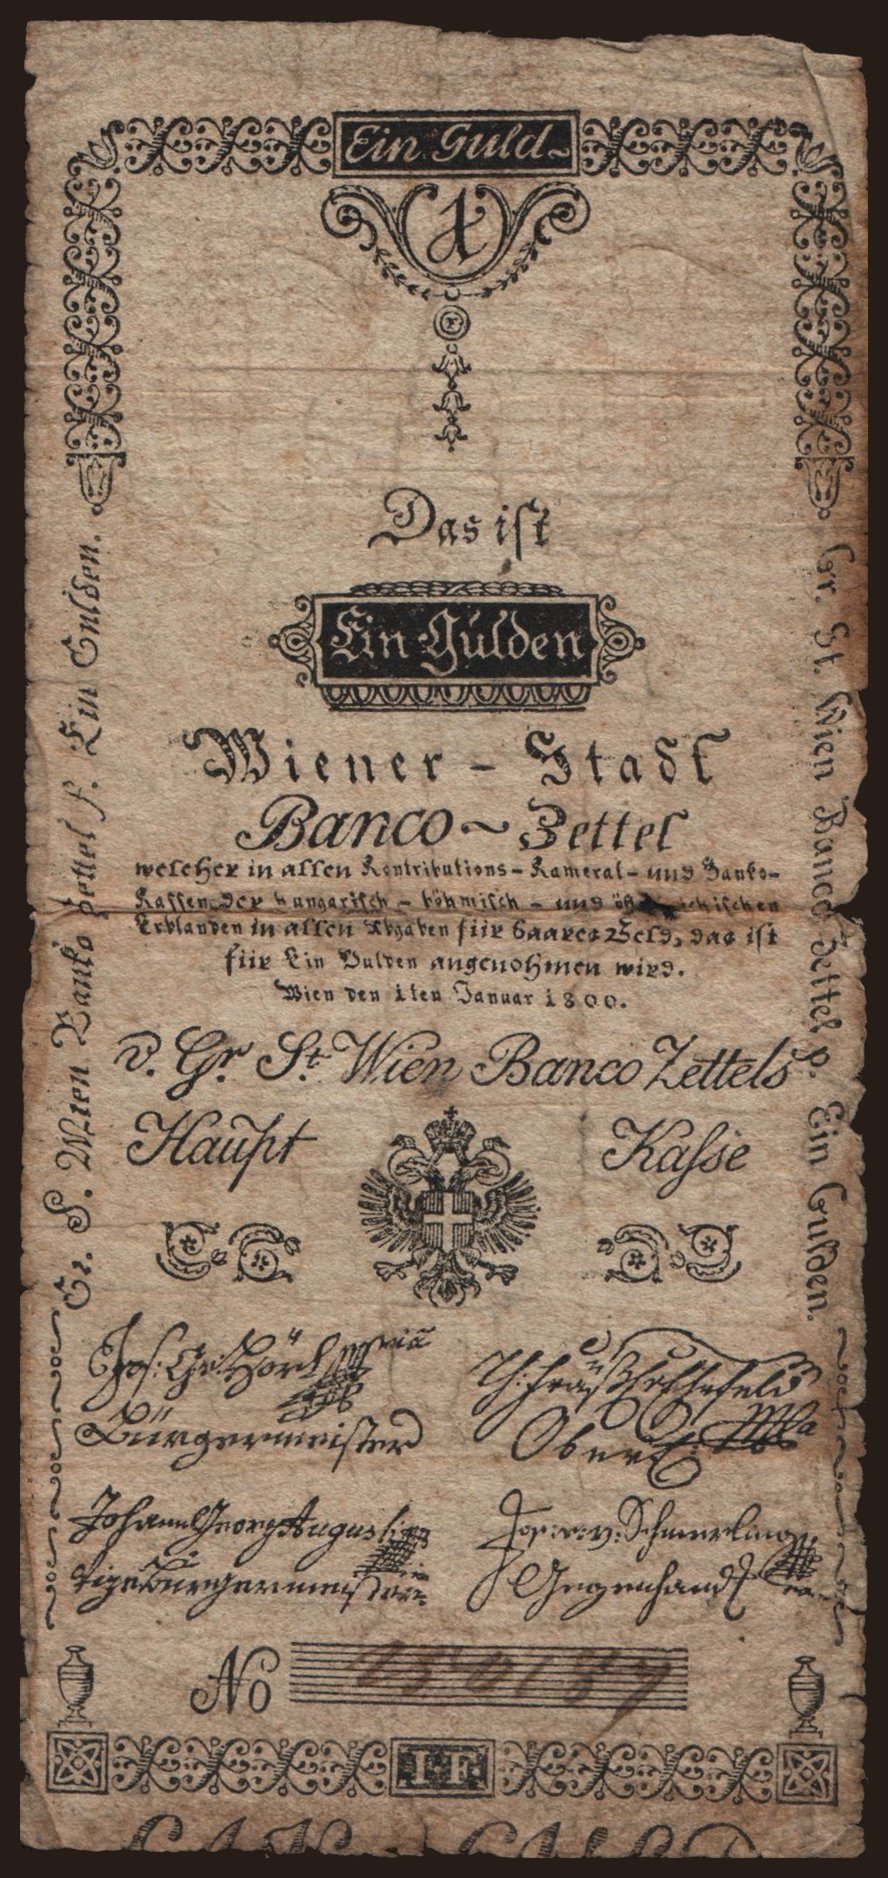 Ein Guld~
1
Das ist
Ein Gulden
Wiener - Stadt
Banco ~ Zettel
welcher in allen Kontributions - Kameral - und Banko-
Kassen der hungarisch - böhmisch - und
Erblanden in allen Abgaben für baares Geld, das ist
für Ein Gulden angenohmen wird.
Wien den 1ten Januar 1800.
v. Gr. St. Wien Banco Zettels
Haupt Kasse
Gr. S. Wien Banko Zettel f. Ein Gulden.
Gr. St. Wien Banco Zettel p. Ein Gulden.
Jos: Hörl
Bürgermeister
Johann Georg Augusti
v: Schmerling
Gegenhand
No